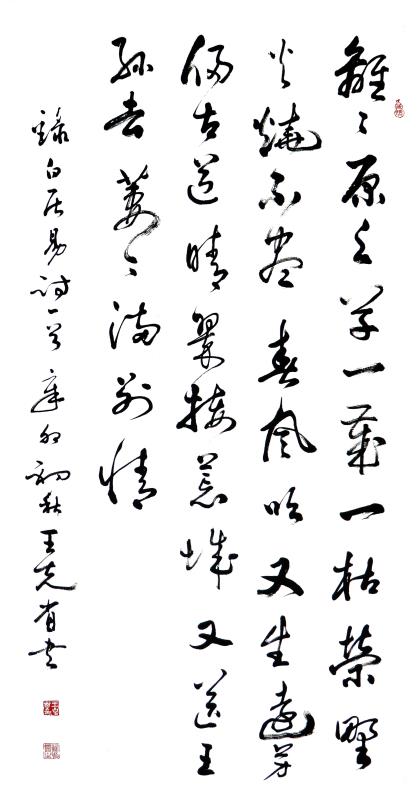 離〻原上草一歲一枯榮野
火燒不盡春風吹又生遠芳
侵古道晴翠接荒城又送王
孫去萋〻滿別情
錄白居易詩一首 辛卯初秋王